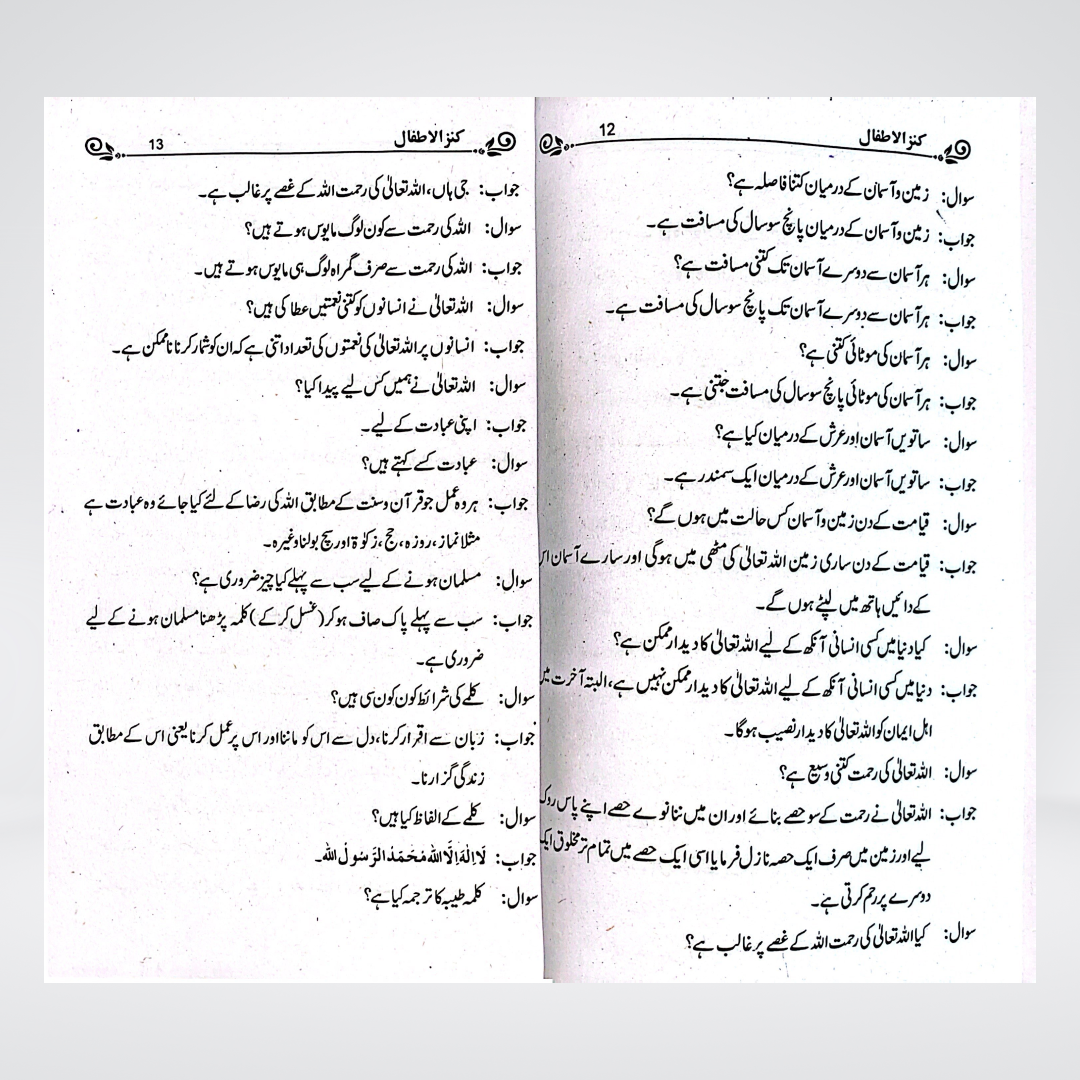 کنز الاطفال 12
سوال: زمین و آسمان کے درمیان کتنا فاصلہ ہے؟
جواب: زمین و آسمان کے درمیان پانچ سو سال کی مسافت ہے۔
سوال: ہر آسمان سے دوسرے آسمان تک کتنی مسافت ہے؟
جواب: ہر آسمان سے دوسرے آسمان تک پانچ سو سال کی مسافت ہے۔
سوال: ہر آسمان کی موٹائی کتنی ہے؟
جواب: ہر آسمان کی موٹائی پانچ سو سال کی مسافت جتنی ہے۔
سوال: ساتویں آسمان اور عرش کے درمیان کیا ہے؟
جواب: ساتویں آسمان اور عرش کے درمیان ایک سمندر ہے۔
سوال: قیامت کے دن زمین و آسمان کس حالت میں ہوں گے؟
جواب: قیامت کے دن ساری زمین اللہ تعالیٰ کی مٹھی میں ہوگی اور سارے آسمان اس
کے دائیں ہاتھ میں لپٹے ہوں گے۔
سوال: کیا دنیا میں کسی انسانی آنکھ کے لیے اللہ تعالیٰ کا دیدار ممکن ہے؟
جواب: دنیا میں کسی انسانی آنکھ کے لیے اللہ تعالیٰ کا دیدار ممکن نہیں ہے، البتہ آخرت میں
اہل ایمان کو اللہ تعالیٰ کا دیدار نصیب ہوگا۔
سوال: اللہ تعالیٰ کی رحمت کتنی وسیع ہے؟
جواب: اللہ تعالیٰ نے رحمت کے سو حصے بنائے اور ان میں ننانوے حصے اپنے پاس روک
لیے اور زمین میں صرف ایک حصہ نازل فرمایا اسی ایک حصے میں تمام تر مخلوق ایک
دوسرے پر رحم کرتی ہے۔
سوال: کیا اللہ تعالیٰ کی رحمت اللہ کے غصے پر غالب ہے؟
کنز الاطفال 13
جواب: جی ہاں، اللہ تعالیٰ کی رحمت اللہ کے غصے پر غالب ہے۔
سوال: اللہ کی رحمت سے کون لوگ مایوس ہوتے ہیں؟
جواب: اللہ کی رحمت سے صرف گمراہ لوگ ہی مایوس ہوتے ہیں۔
سوال: اللہ تعالیٰ نے انسانوں کو کتنی نعمتیں عطا کی ہیں؟
جواب: انسانوں پر اللہ تعالیٰ کی نعمتوں کی تعداد اتنی ہے کہ ان کو شمار کرنا ناممکن ہے۔
سوال: اللہ تعالیٰ نے ہمیں کس لیے پیدا کیا؟
جواب: اپنی عبادت کے لیے۔
سوال: عبادت کسے کہتے ہیں؟
جواب: ہر وہ عمل جو قرآن و سنت کے مطابق اللہ کی رضا کے لئے کیا جائے وہ عبادت ہے
مثلا نماز، روزہ، حج، زکوٰۃ اور سچ بولنا وغیرہ۔
سوال: مسلمان ہونے کے لیے سب سے پہلے کیا چیز ضروری ہے؟
جواب: سب سے پہلے پاک صاف ہو کر (غسل کر کے) کلمہ پڑھنا مسلمان ہونے کے لیے
ضروری ہے۔
سوال: کلمے کی شرائط کون کون سی ہیں؟
جواب: زبان سے اقرار کرنا، دل سے اس کو ماننا اور اس پر عمل کرنا یعنی اس کے مطابق
زندگی گزارنا۔
سوال: کلمے کے الفاظ کیا ہیں؟
جواب: لَا اِلٰهَ اِلَّا اللہ مُحَمَّدٌ الرَّسُولُ اللہ۔
سوال: کلمہ طیبہ کا ترجمہ کیا ہے؟